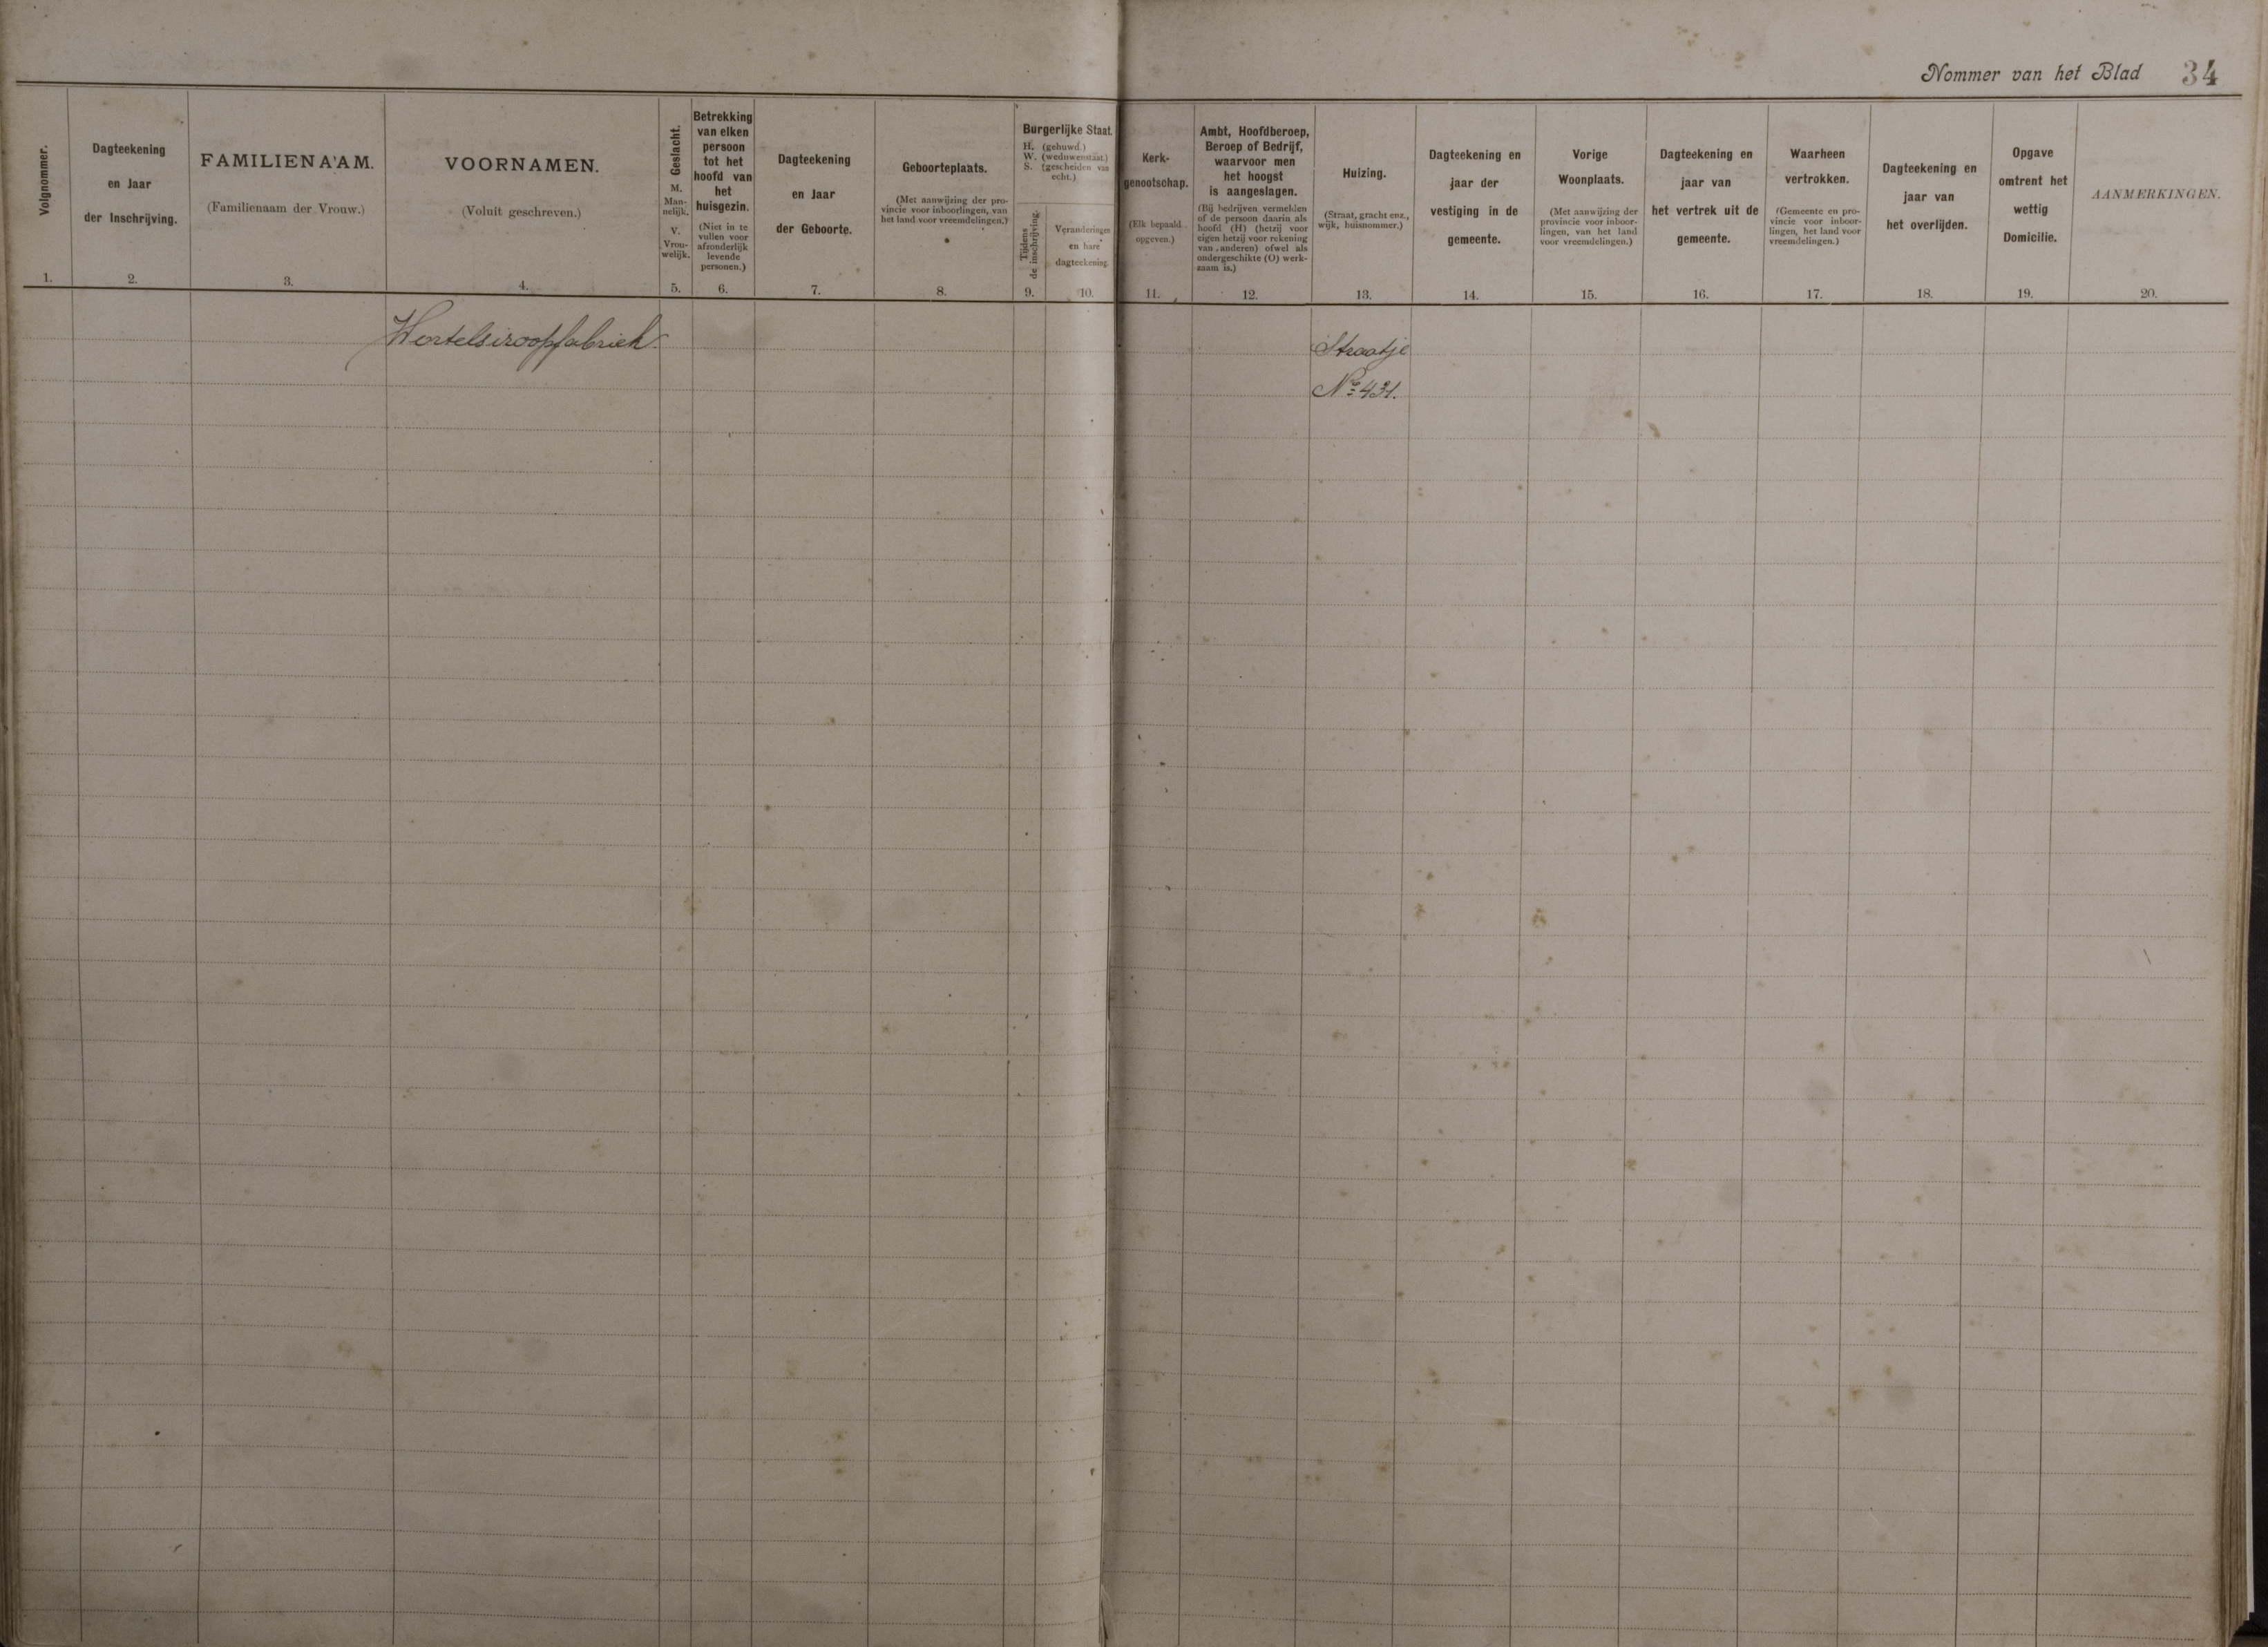 Nommer van het Blad 34
Volgnommer.
1.
Dagteekening
en Jaar
der Inschrijving.
2.
FAMILIENAAM.
(Familienaam der Vrouw.)
3.
VOORNAMEN.
(Voluit geschreven.)
4.
Geslacht.
M.
Man-
nelijk.
V.
Vrou-
welijk.
5.
Betrekking
van elken
persoon
tot het
hoofd van
het
huisgezin.
(Niet in te
vullen voor
afzonderlijk
levende
personen.)
6.
Dagteekening
en Jaar
der Geboorte.
7.
Geboorteplaats.
(Met aanwijzing der pro-
vincie voor inboorlingen, van
het land voor vreemdelingen.)
8.
Burgerlijke Staat.
H. (gehuwd.)
W. (weduwenstaat.)
S. (gescheiden van
echt.)
Tijdens
de inschrijving.
9.
Veranderingen
en hare
dagteekening.
10.
Kerk-
genootschap.
(Elk bepaald
opgeven.)
11.
Ambt, Hoofdberoep,
Beroep of Bedrijf,
waarvoor men
het hoogst
is aangeslagen.
(Bij bedrijven vermelden
of de persoon daarin als
hoofd (H) (hetzij voor
eigen hetzij voor rekening
van anderen) ofwel als
ondergeschikte (O) werk-
zaam is.)
12.
Huizing.
(Straat, gracht enz.,
wijk, huisnommer.)
13.
Dagteekening en
jaar der
vestiging in de
gemeente.
14.
Vorige
Woonplaats.
(Met aanwijzing der
provincie voor inboor-
lingen, van het land
voor vreemdelingen.)
15.
Dagteekening en
jaar van
het vertrek uit de
gemeente.
16.
Waarheen
vertrokken.
(Gemeente en pro-
vincie voor inboor-
lingen, het land voor
vreemdelingen.)
17.
Dagteekening en
jaar van
het overlijden.
18.
Opgave
omtrent het
wettig
Domicilie.
19.
AANMERKINGEN.
20.
Wortelsiroopfabriek.
Straatje
No 431.